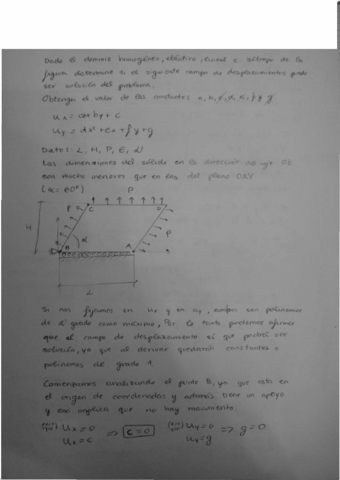 Dado el dominio homogéneo, elástico, lineal e isótropo de la
figura determinar si el siguiente campo de desplazamientos puede
ser solución del problema.
Obtenga el valor de las constantes a, b, c, d, e, f y g
Ux = ax + by + c
Uy = dx² + ex + fy + g
Datos: L, H, P, E, υ
Las dimensiones del sólido en la dirección del eje OZ
son mucho menores que en las del plano OXY
(α = 60°)
P
P
C
D
H
α
P
B
A
L
Si nos fijamos en Ux y en uy, ambos son polinomios
de 2º grado como máximo, Por lo tanto podemos afirmar
que el campo de desplazamiento sí que podría ser
solución, ya que al derivar quedarían constantes o
polinomios de grado 1.
Comenzamos analizando el punto B, ya que está en
el origen de coordenadas y además tiene un apoyo
y eso implica que no hay movimiento.
Ux = 0 ⇒ c = 0 Uy = 0 ⇒ g = 0
Ux = c uy = g